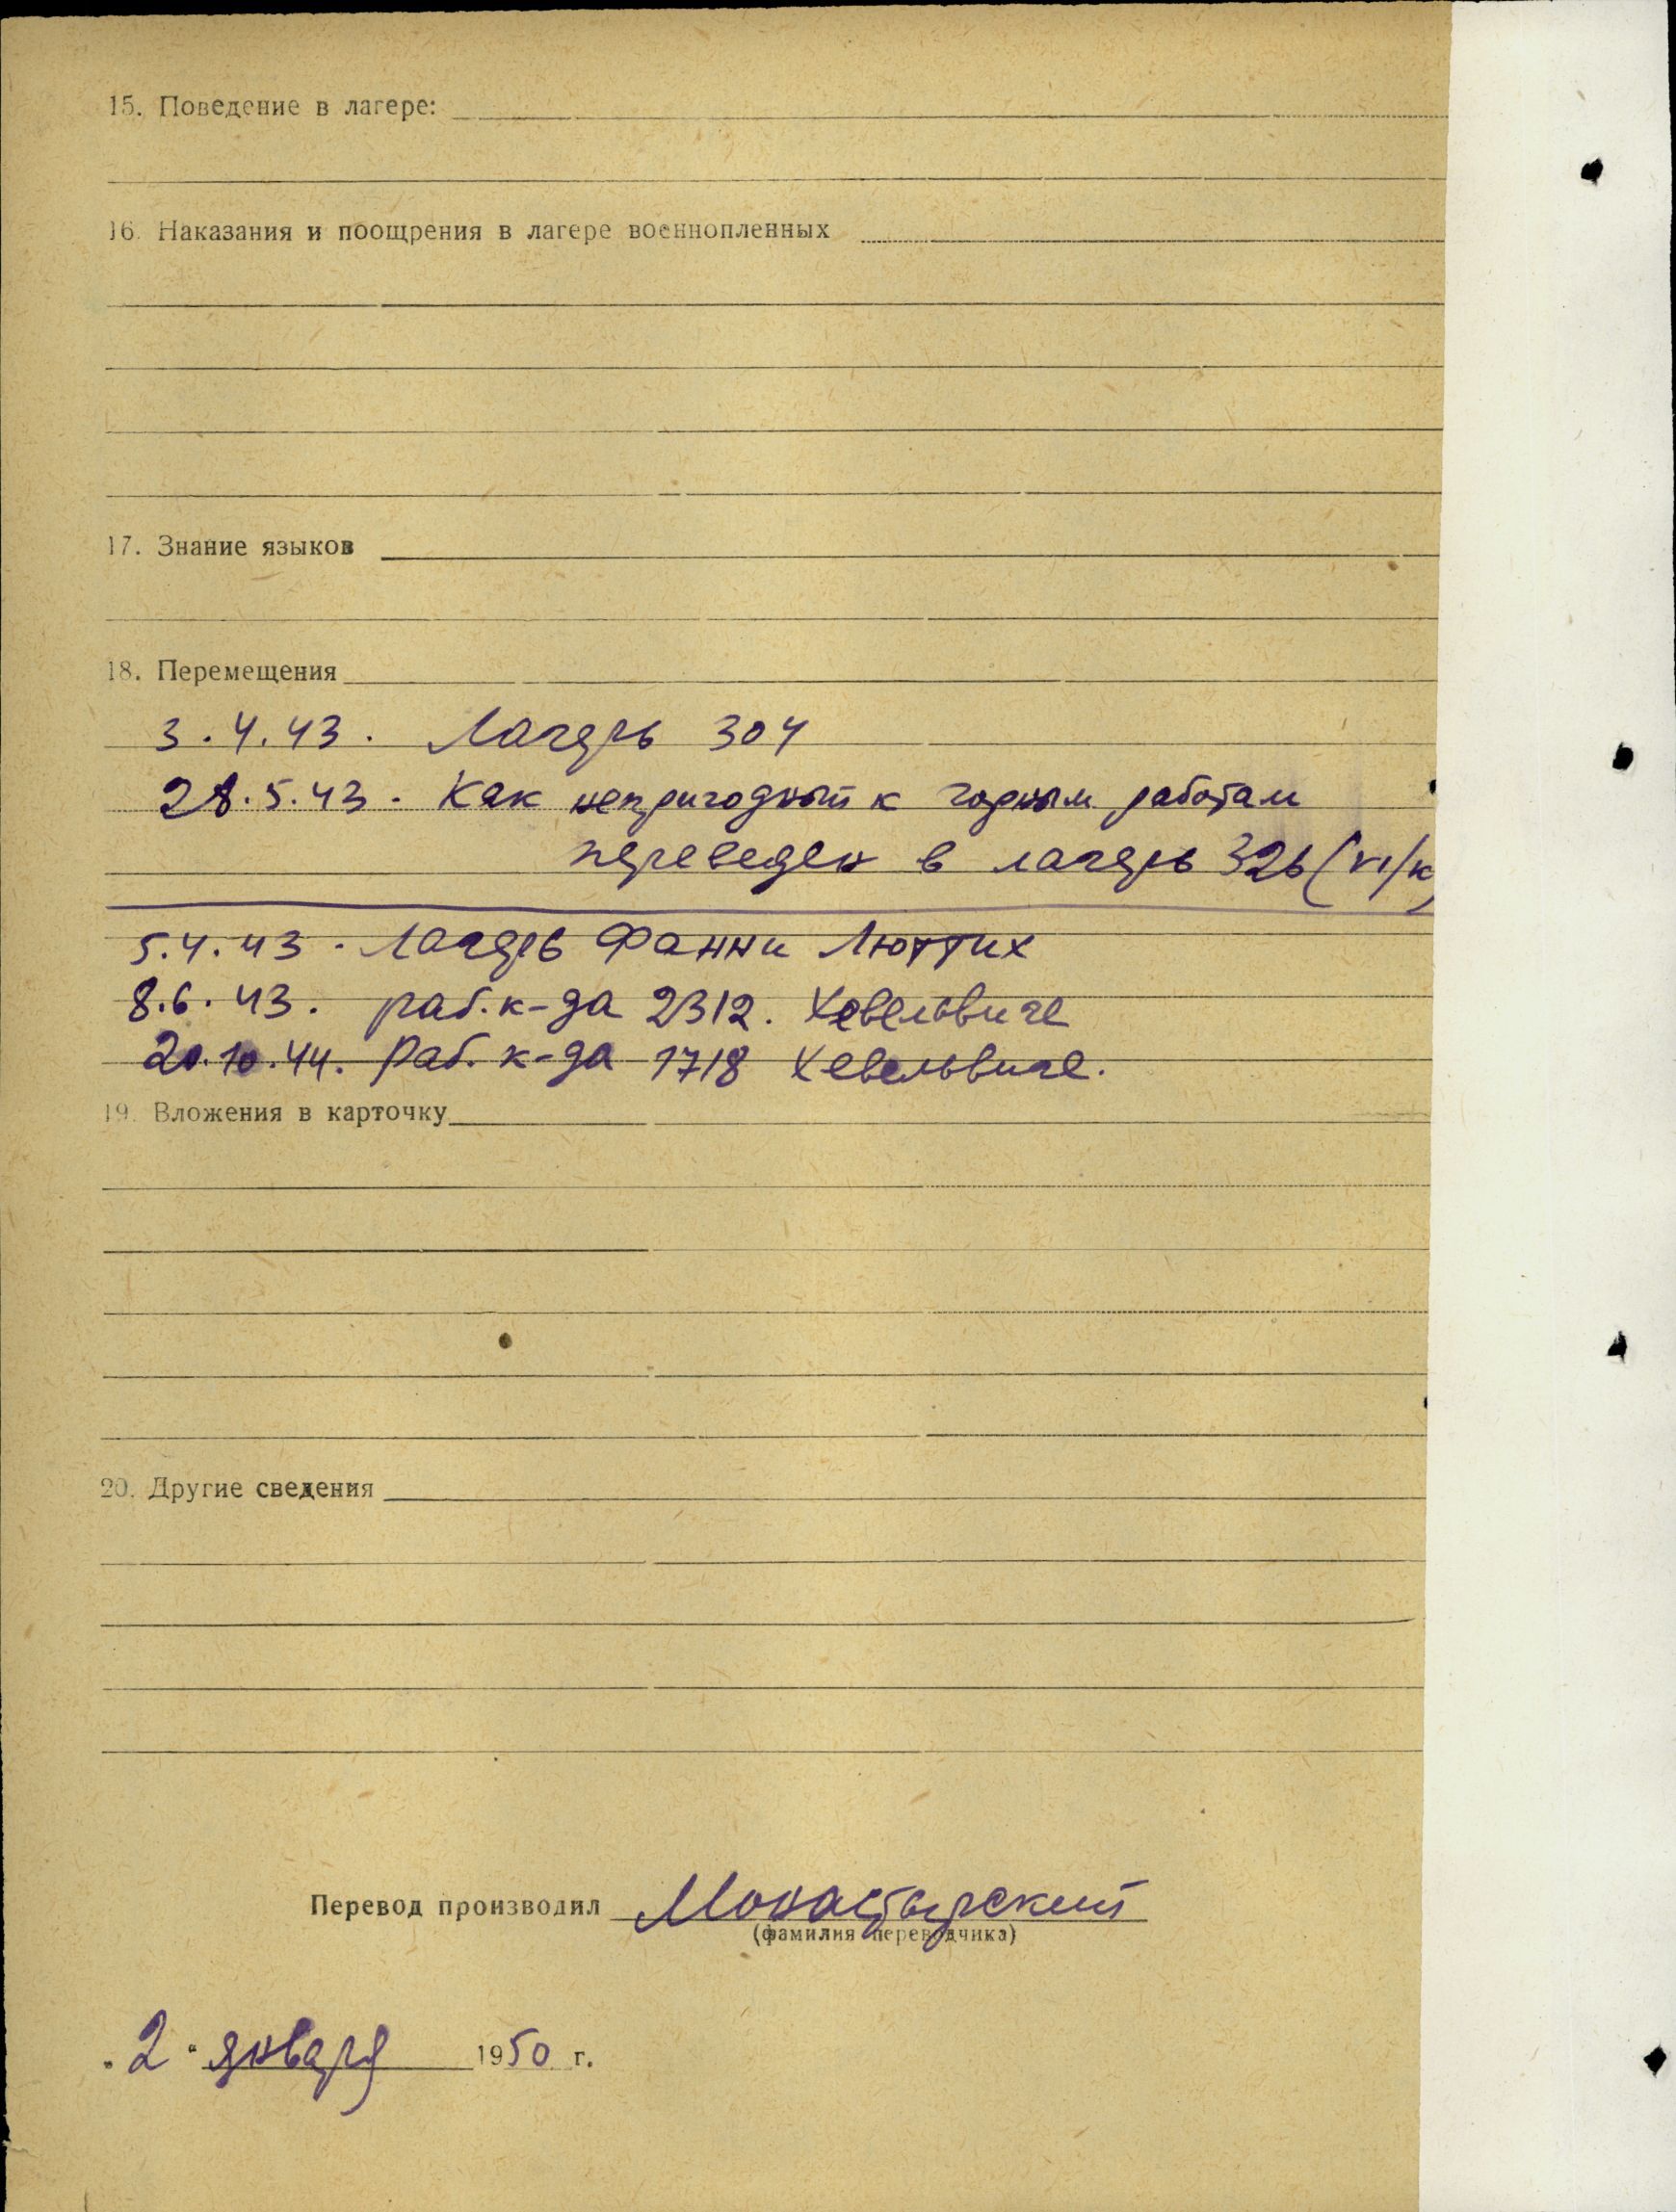 15. Поведение в лагере:
16. Наказания и поощрения в лагере военнопленных
17. Знание языков
18. Перемещения
3.4.43. Лагерь 304
28.5.43. Как непригодный к горным работам
переведен в лагерь 326 (VI/к)
5.4.43 - Лагерь Фанни Люттих
8.6.43. раб. к-да 2312. Хевельвиге
20.10.44. Раб. к-да 1718 Хевельвиге.
19. Вложения в карточку
20. Другие сведения
Перевод производил Монастырский
(фамилия переводчика)
"2" января 1950 г.